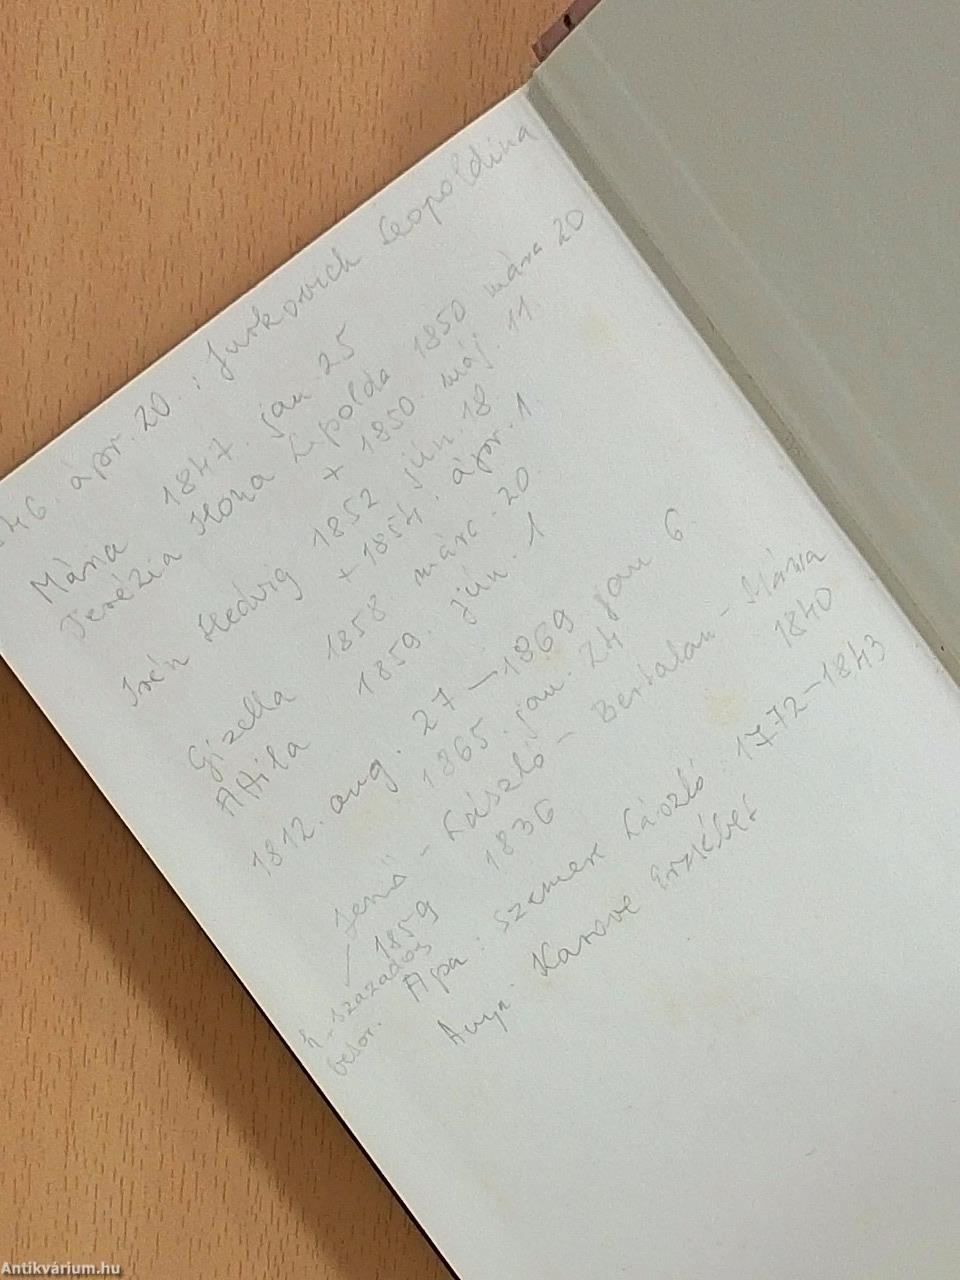 46. ápr. 20. : Jurkovich Leopoldina
Mária 1847. jan 25
Terézia Ilona Lipolda 1850 márc 20
+ 1850. máj. 11.
Irén Hedvig 1852 jún. 18
+ 1854. ápr. 1.
Gizella 1858. márc. 20.
Attila 1859. jún. 1
1812. aug. 27 — 1869 jan 6.
1865. jan. 24
Jenő - László - Bertalan - Mária
1859 1836 1840
h. százados
Apa: Szemere László 1772-1843
Anya: Karove Erzsébet
Antikvárium.hu